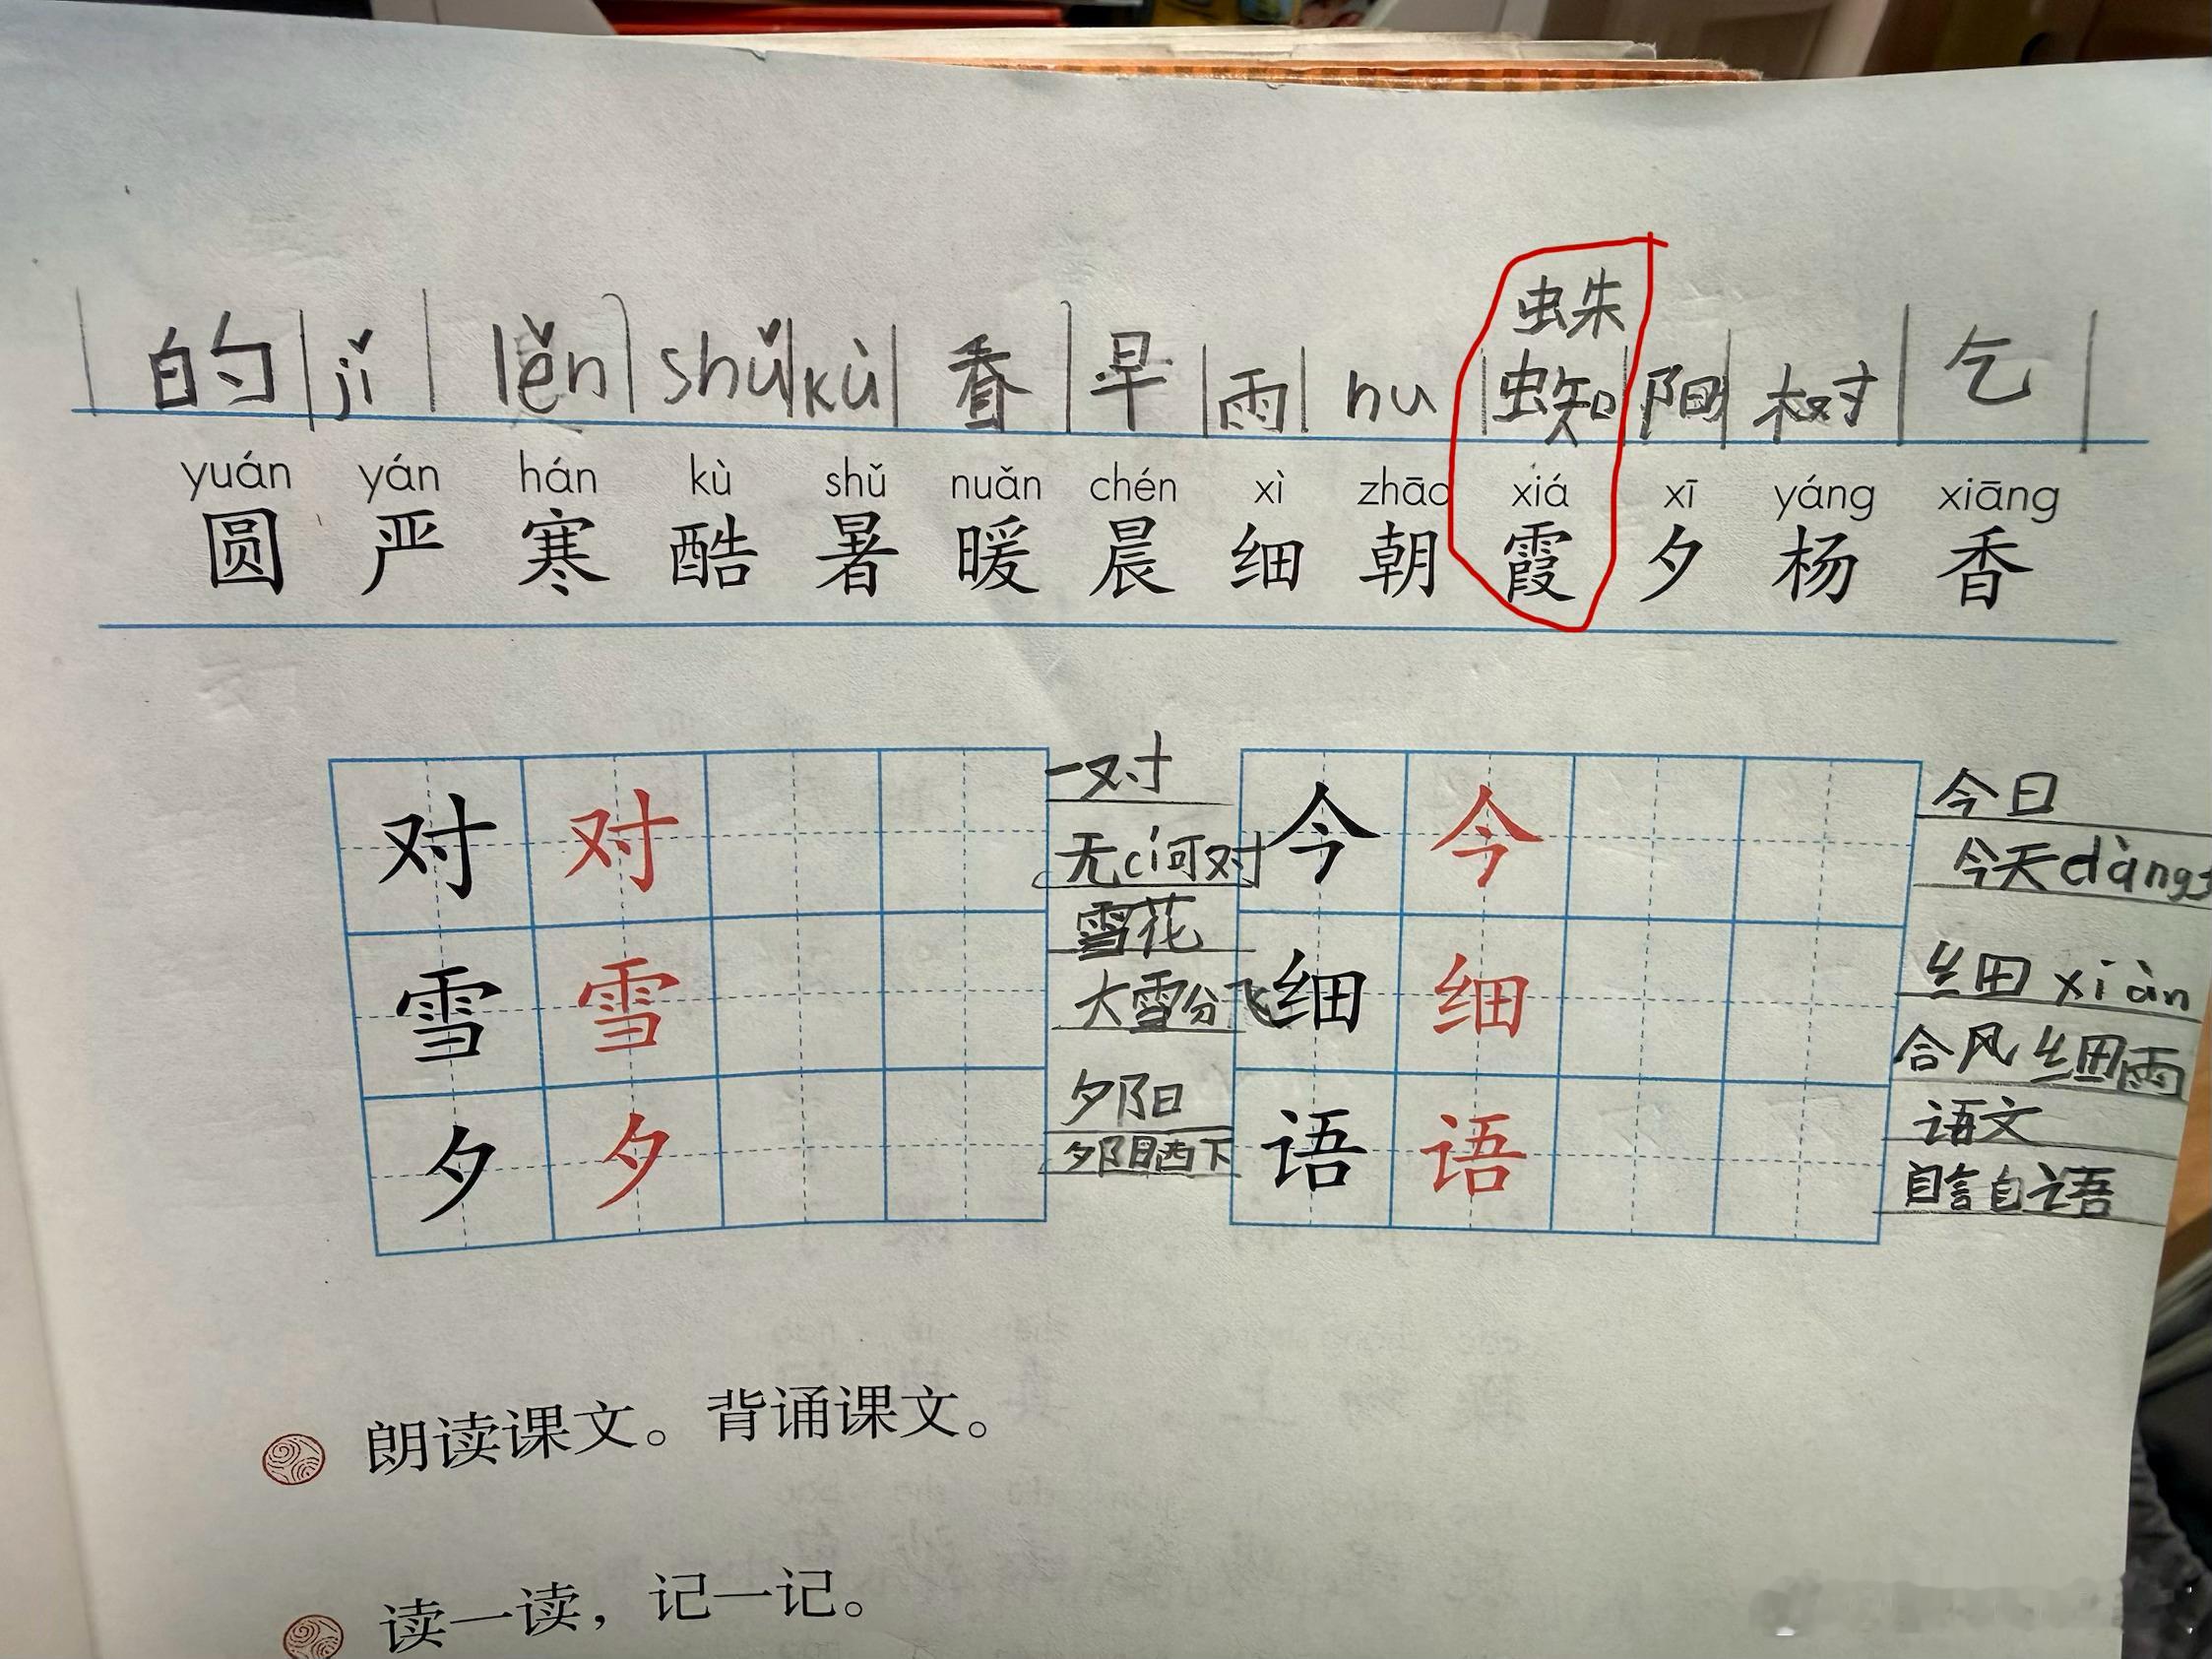 蛛
的 jǐ lěn shǔ kù 香 早 雨 nu 蜘 阳 树 乞
yuán yán hán kù shǔ nuǎn chén xì zhāo xiá xī yáng xiāng
圆 严 寒 酷 暑 暖 晨 细 朝 霞 夕 杨 香
对 对
一对
无cí可对
雪 雪
雪花
大雪分飞
夕 夕
夕阳
夕阳西下
今 今
今日
今天dàng
细 细
细xiàn
合风细雨
语 语
语文
自言自语
朗读课文。背诵课文。
读一读，记一记。